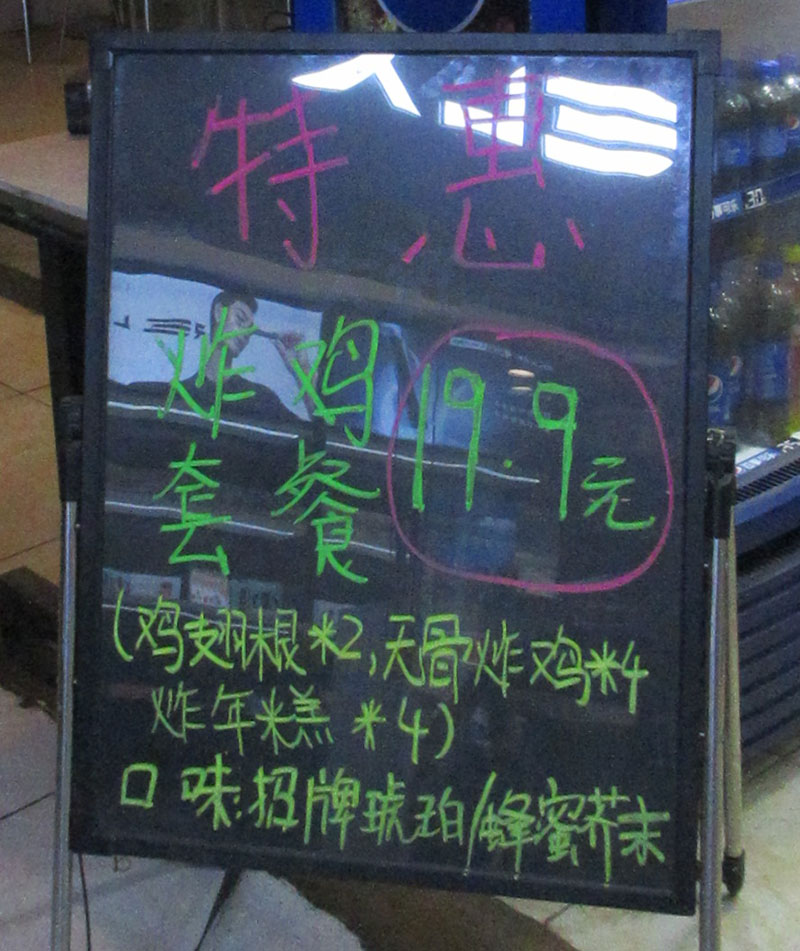 特惠
炸鸡
套餐
19.9元
(鸡翅根*2,无骨炸鸡*4
炸年糕*4)
口味:招牌琥珀/蜂蜜芥末